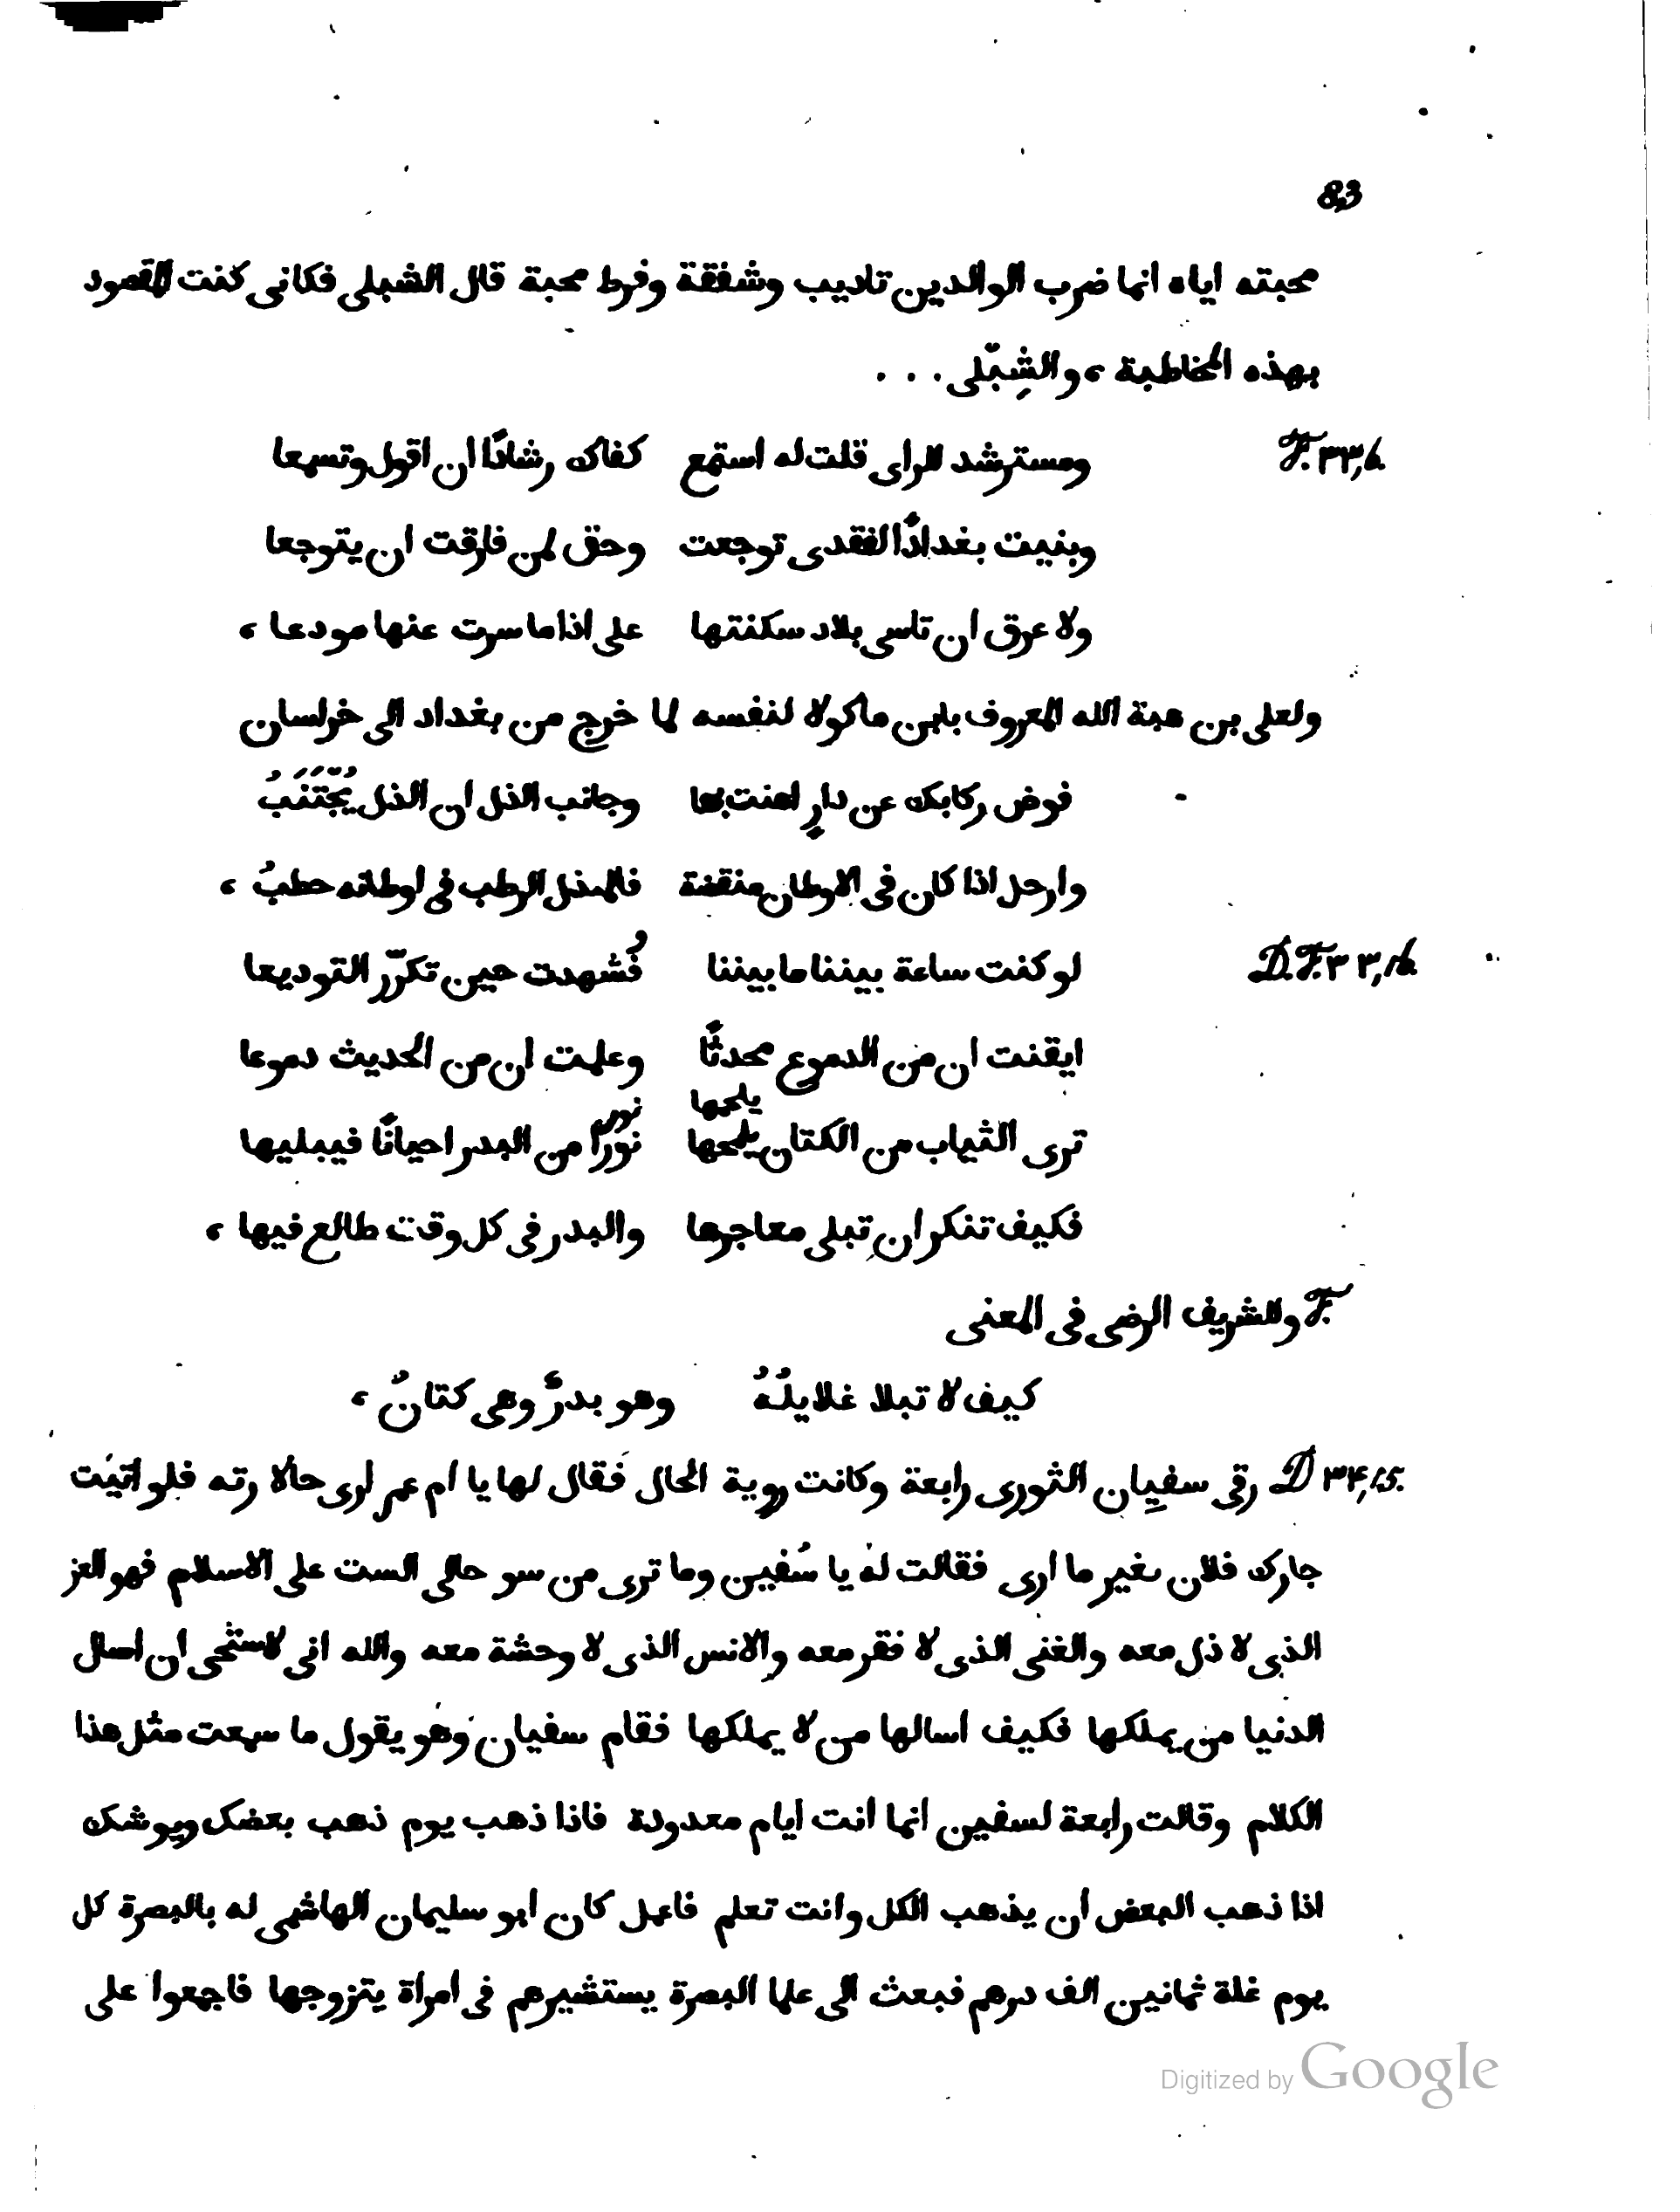 83
محبته اياه انما ضرب الوالدين تاديب وشفقة وفرط محبة قال الشبلى فكانى كنت المقصود
بهذه المخاطبة ، والشِبّلى . . .
F. ٣٣,6. ومسترشد للراى قلت له استمع كفاك رشادًا ان اقول وتسمعا
وبنيت بغدادًا لفقدى توجعت وحق لمن فارقت ان يتوجعا
ولا عرق ان تاسى بلاد سكنتها على اذا ما سرت عنها مودعا ،
ولعلى بن هبة الله المعروف بابن ماكولا لنفسه لما خرج من بغداد الى خراسان
قوض ركابك عن دارٍ اهنت بها وجانب الذل ان الذل يُجْتَنَبُ
وارحل اذا كان فى الاوطان منقضة فالمندل الرطب فى اوطانه حطبُ ،
D.F. ٣٣,16. لو كنت ساعة بيننا ما بيننا فُشهدت حين تكرّر التوديعا
ايقنت ان من الدموع محدثًا وعلمت ان من الحديث دموعا
يلمحها نور
ترى الثياب من الكتان يلمحها نورًا من البدر احيانًا فيبليها
فكيف تنكر ان تبلى معاجرها والبدر فى كل وقت طالع فيها ،
F. وللشريف الرضى فى المعنى
كيف لا تبلا غلايلُهُ وهو بدرٌ وهى كتانٌ ،
D ٣٤,15. رقى سفيان الثورى رابعة وكانت روية الحال فقال لها يا ام عمر ارى حالا رته فلو اتيت
جارك فلان بغير ما ارى فقالت له يا سُفين وما ترى من سو حالى الست على الاسلام فهو العز
الذى لا ذل معه والغنى الذى لا فقر معه والانس الذى لا وحشة معه والله انى لاستحى ان اسال
الدنيا من يملكها فكيف اسالها من لا يملكها فقام سفيان وهو يقول ما سمعت مثل هذا
الكلام وقالت رابعة لسفين انما انت ايام معدودة فاذا ذهب يوم ذهب بعضك ويوشك
اذا ذهب البعض ان يذهب الكل وانت تعلم فاعمل كان ابو سليمان الهاشمى له بالبصرة كل
يوم غلة ثمانين الف درهم فبعث الى علما البصرة يستشيرهم فى امراة يتزوجها فاجمعوا على
Digitized by Google